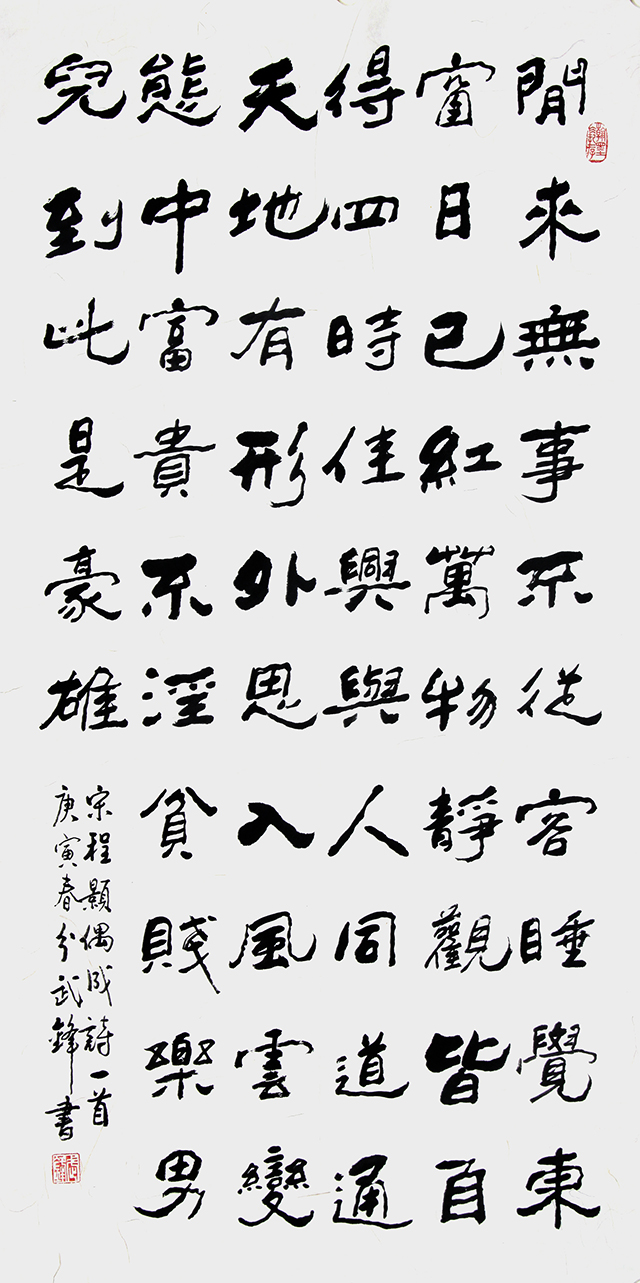 閒來無事不從容睡覺東
窗日已紅萬物靜觀皆自
得四時佳興與人同道通
天地有形外思入風雲變
態中富貴不淫貧賤樂男
兒到此是豪雄
宋程顥偶成詩一首
庚寅春分武鋒書